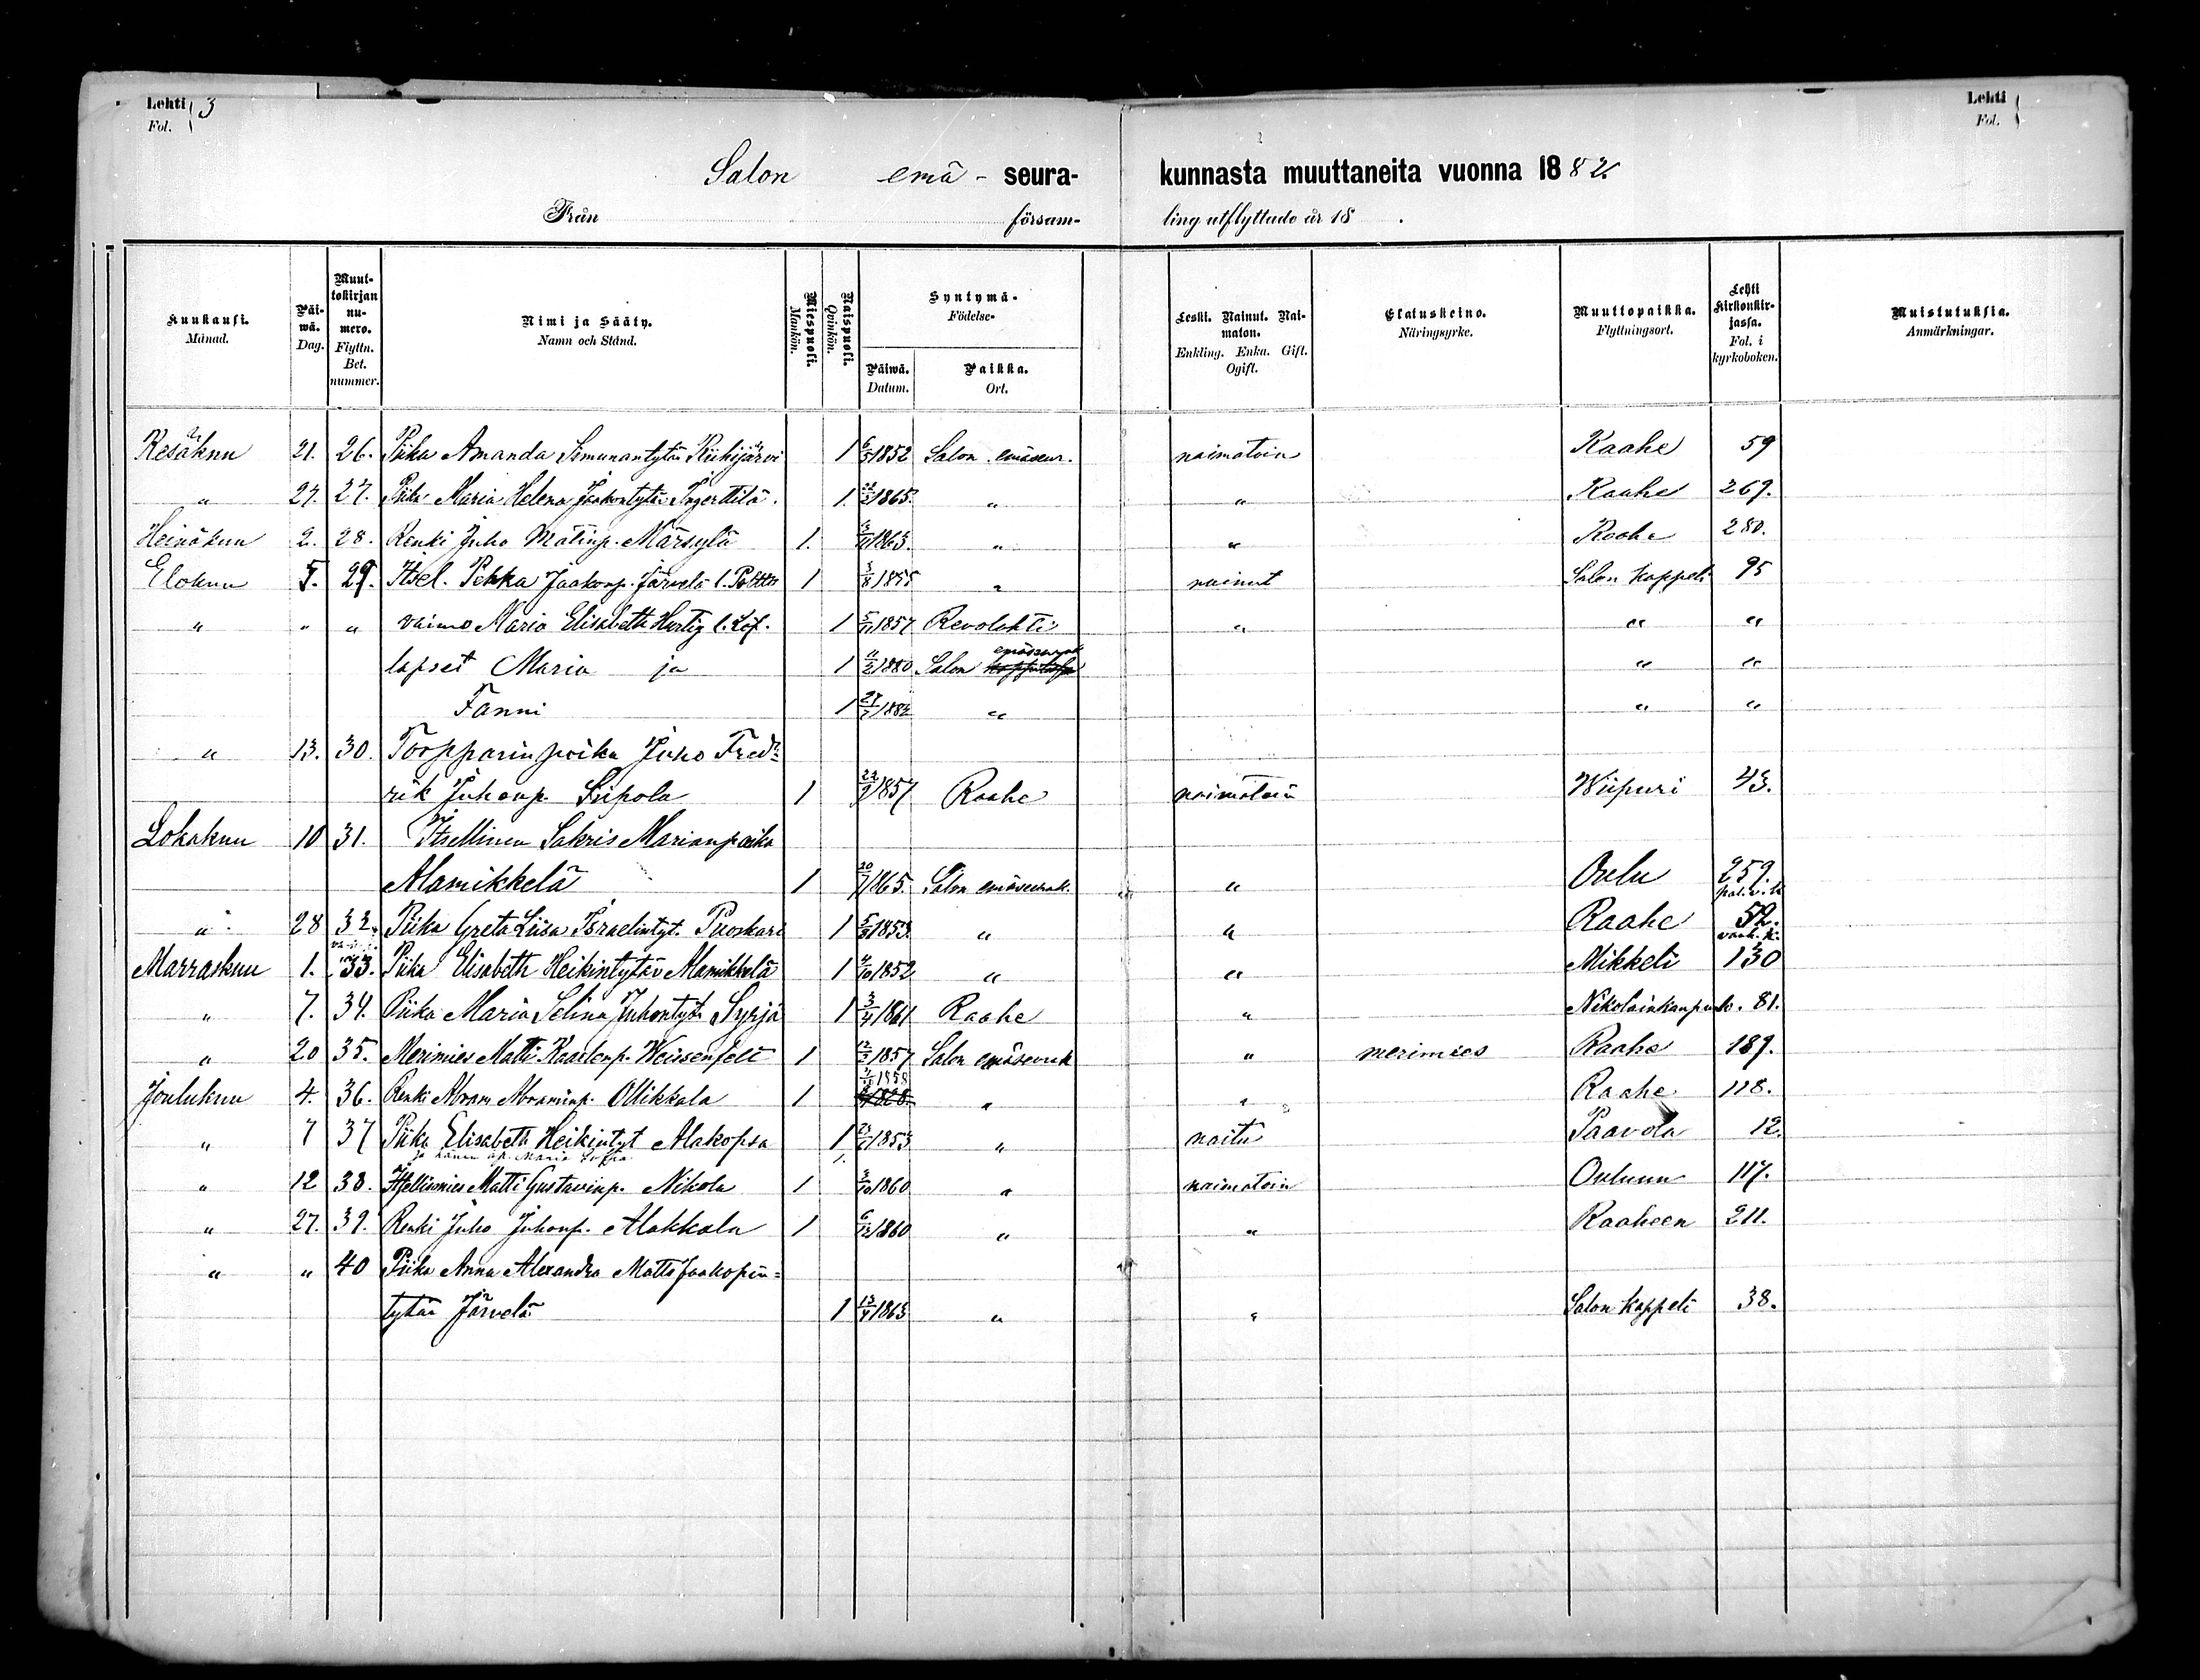 Lehti 3
Fol.
Lehti
Fol.
Salon emä- seura- kunnasta muuttaneita vuonna 1882
Från försam- ling utflyttade år 18 .
Kuukausi. Månad.
Päiwä. Dag.
Muuttokirjan numero. Flyttn. Bet. nummer.
Nimi ja Sääty. Namn och Stånd.
Miespuoli. Mankön.
Naispuoli. Qvinkön.
Syntymä- Födelse-
Päiwä. Datum.
Paikka. Ort.
Leski. Nainut. Naimaton. Enkling. Enka. Gift. Ogift.
Elatuskeino. Näringsyrke.
Muuttopaikka. Flyttningsort.
Lehti Kirkonkirjassa. Fol. i kyrkoboken.
Muistutuksia. Anmärkningar.
Kesäkuu 21. 26. Piika Amanda Simunantytär 1 1852 Salon emäseur. naimatoin Raahe 59
" 27. 27. Piika Maria Helena Jaakontytär Ingerttilä. 1. 1865. " " Raahe 269.
Heinäkuu 2. 28. Renki Juho Matinp. Märsylä 1. 1863. " " Raahe 280.
Elokuu 5. 29. Itsel. Pekka Jaakonp. Järvelä l. 1 " nainut Salon kappeli 95
" " " vaimo Maria Elisabeth Hertig l. Löf. 1 1857 Revolahti " " "
lapset Maria ja 1 1880 Salon emäseurak " "
Fanni 1 27/7 1882 " " "
" 13. 30. Torpparinpoika Juho Fred-
rik Juhonp. Siipola 1 1857 Raahe naimatoin Wiipuri 43.
Lokakuu 10 31. Itsellinen Sakris Marianpoika
Alamikkelä 1 1865. Salon emäseurak. " Oulu 259.
" 28 32. Piika Greta Liisa Israelintyt. Puoskari 1 1853 " " Raahe 52.
Marraskuu 1. 33. Piika Elisabeth Heikintytär Alamikkelä 1 1852 " " Mikkeli 130
" 7. 34. Piika Maria Selina Juhontyt. Syrjä 1 1861 Raahe " Nikolainkaupunk. 81.
" 20 35. Merimies Matti Kaarlenp. Weissenfelt 1 1857 Salon emäseurak " merimies Raahe 189.
Joulukuu 4. 36. Renki Abram Abraminp. Ollikkala 1 1858 " " Raahe 118.
" 7 37 Piika Elisabeth Heikintyt Alakopsa 1 1853 " naitu Paavola 12.
ja hänen äp. Maria Sofia 1.
" 12 38. Itsellismies Matti Gustavinp. Nikola 1 1860 " naimatoin Ouluun 117.
" 27. 39. Renki Juho Juhonp. Alakkala 1 6/12 1860 " " Raaheen 211.
" " 40 Piika Anna Alexandra Matts Jaakopin-
tytär Järvelä 1 1863 " " Salon kappeli 38.